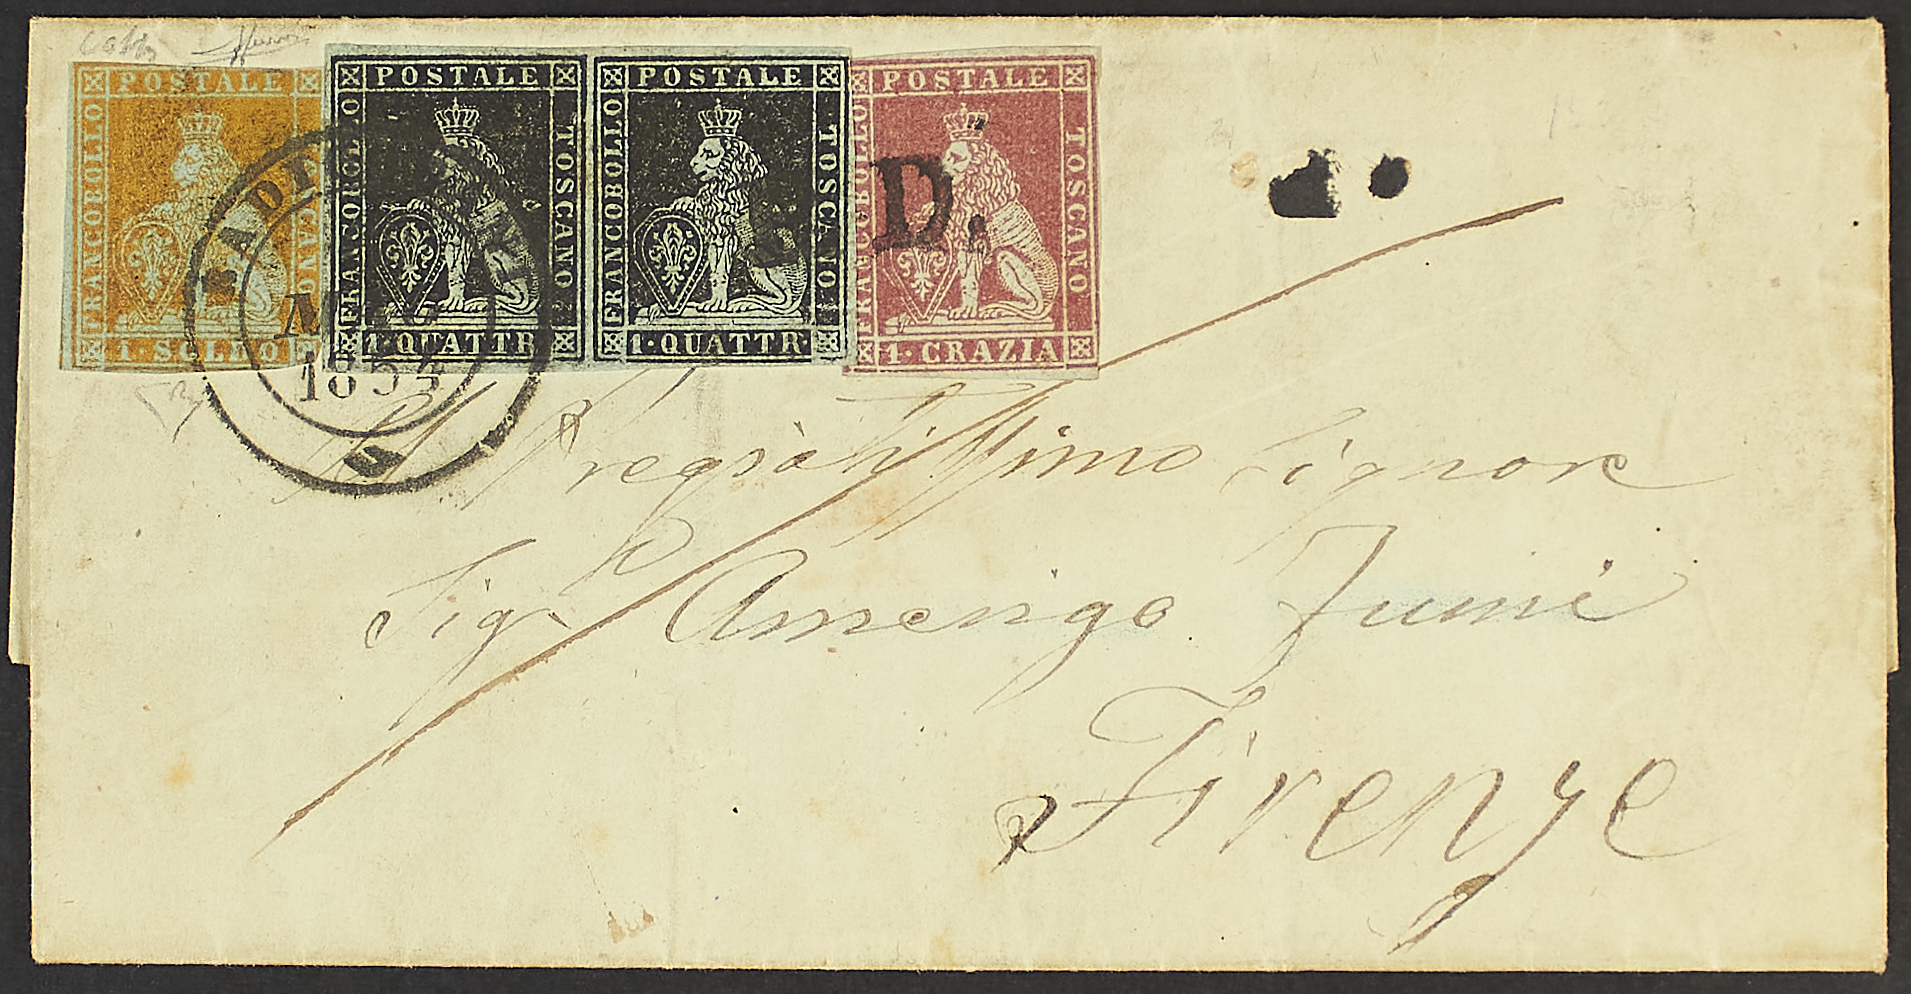 POSTALE
FRANCOBOLLO
TOSCANO
1·SOLDO
POSTALE
FRANCOBOLLO
TOSCANO
1·QUATTR·
POSTALE
FRANCOBOLLO
TOSCANO
1·QUATTR·
POSTALE
FRANCOBOLLO
TOSCANO
1·CRAZIA
P.D.
1853
Al Pregiatissimo Signore
Sig. Amerigo
Firenze